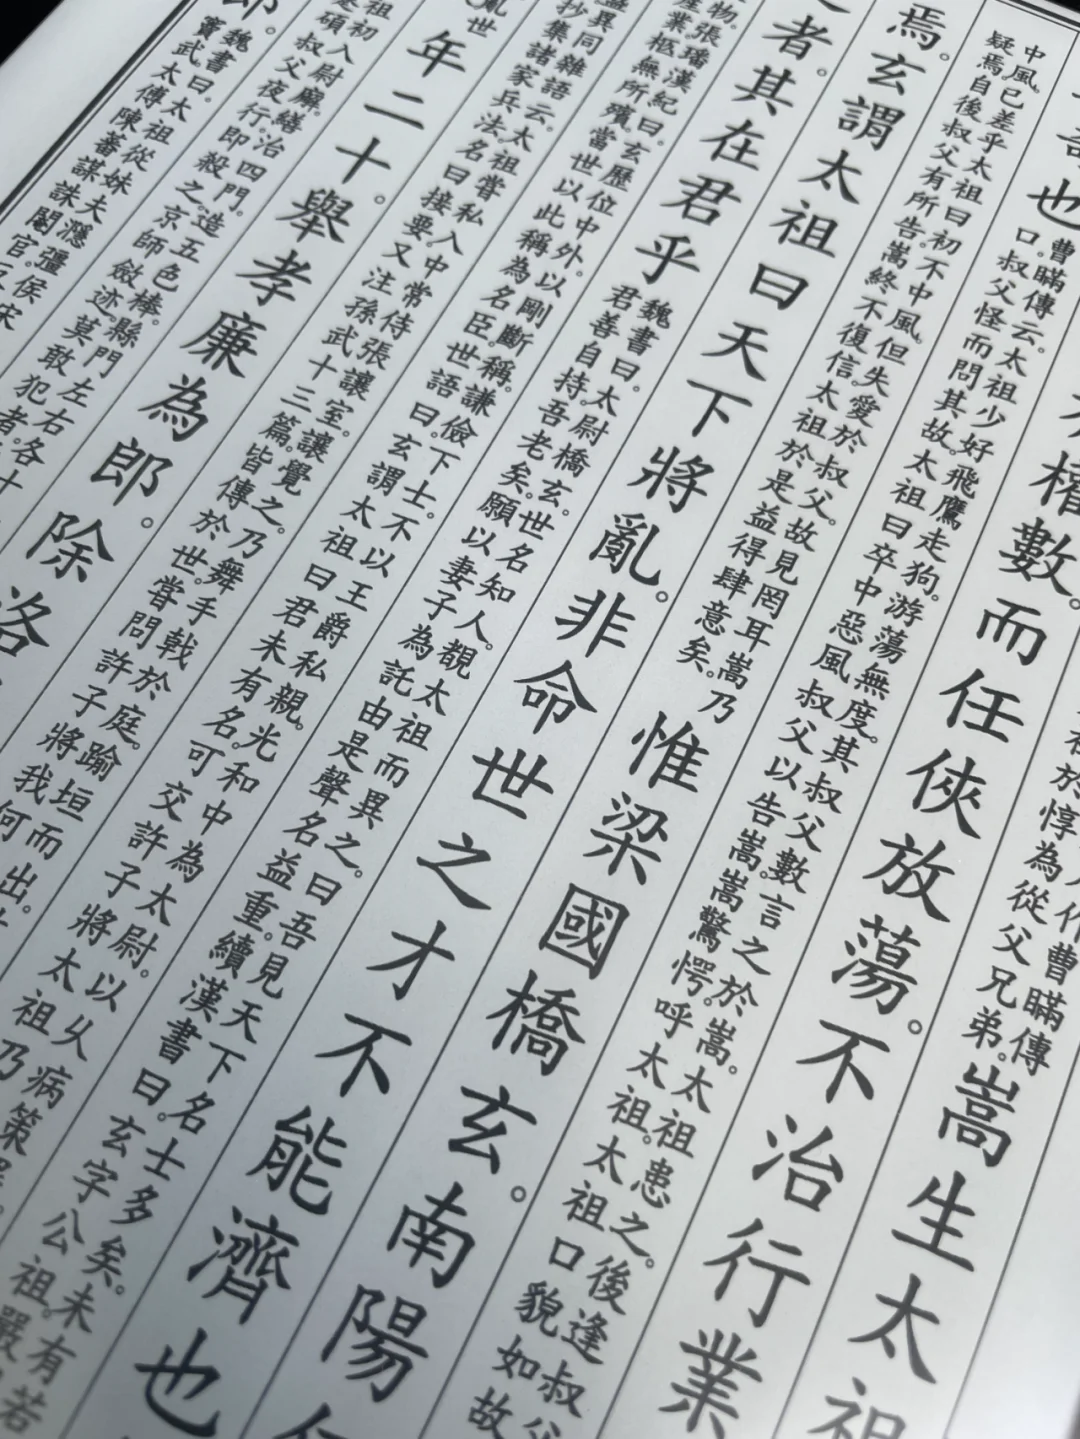 作曹瞞傳
於惇為從父兄弟。
嵩生太祖
權數。而任俠放蕩。不治行業
也
曹瞞傳云。太祖少好飛鷹走狗。游蕩無度。其叔父數言之於嵩。太祖患之。後逢叔父
口。叔父怪而問其故。太祖曰卒中惡風叔父以告嵩。嵩驚愕。呼太祖。太祖口貌如故
中風。已差乎太祖曰初不中風。但失愛於叔父。故見罔耳嵩乃
疑焉自後叔父有所告。嵩終不復信。太祖於是益得肆意矣。
惟梁國橋玄。南陽何
焉。玄謂太祖曰天下將亂。非命世之才不能濟也
之者。其在君乎
魏書曰。太尉橋玄。世名知人。覩太祖而異之。曰吾見天下名士多矣。未有若
君善自持。吾老矣。願以妻子為託由是聲名益重。續漢書曰。玄字公祖。嚴
物。張璠漢紀曰。玄歷位中外。以剛斷稱。謙儉下士。不以王爵私親。光和中為太尉。以久病策罷
產業柩無所殯。當世以此稱為名臣。世語曰。玄謂太祖曰君未有名。可交許子將。太祖乃
盛異同雜語云。太祖嘗私入中常侍張讓室。讓覺之。乃舞手戟於庭。踰垣而出。
抄集諸家兵法。名曰接要。又注孫武十三篇。皆傳於世。嘗問許子將。我何
亂世
年二十。舉孝廉為郎。除洛
祖初入尉廨。繕治四門。造五色棒。縣門左右各十
是碩叔父夜行。即殺之。京師斂迹莫敢犯者。
郎。
魏書曰。太祖從妹夫濦彊侯宋
竇武太傅陳蕃謀誅閹官。